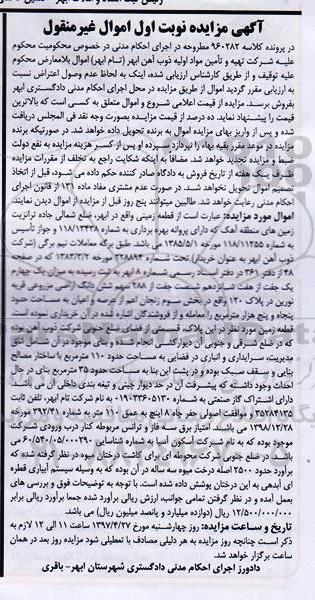 آگهی مزایده نوبت اول اموال غیرمنقول
در پرونده کلاسه ۹۶۰۲۸۲ مطروحه در اجرای احکام مدنی در خصوص محکومیت محکوم
علیه شرکت تهیه و تأمین مواد اولیه ذوب آهن ابهر (تـام ابهر) اموال بلامعارض محکوم
علیه توقیف و از طریق کارشناس ارزیابی شده، اینک به لحاظ عدم وصول اعتراض نسبت
به ارزیابی مقرر گردید اموال از طریق مزایده در محل اجرای احکام مدنی دادگستری ابهر
بفروش برسد. مزایده از قیمت اعلامی شروع و اموال متعلق به کسی است که بالاترین
قیمت را پیشنهاد نماید. ده درصد از قیمت مزایده بصورت وجه نقد فی المجلس دریافت
شده و پس از واریز بهای مزایده اموال به برنده تحویل داده خواهد شد. در صورتیکه برنده
مزایده در موعد مقرر بقیه بهاء را نپردازد سپرده او پس از کسر هزینه مزایده به نفع دولت
ضبط و مزایده تجدید خواهد شد. مضافاً به اینکه شکایت راجع به تخلف از مقررات مزایده
ظرف یک هفته از تاریخ فروش به دادگاه صادر کننده حکم داده می شود، قبل از اتخاذ
تصمیم اموال تحویل نخواهد شد. در صورت عدم مشتری مفاد ماده ۱۳۱ از قانون اجرای
احکام مدنی رعایت خواهد شد. طالبین میتوانند پنج روز قبل از مزایده از اموال دیدن نمایند.
اموال مورد مزایده: عبارت است از قطعه زمینی واقع در ابهر، ضلع شمالی جاده ترانزیت
زمین های منطقه آهک که دارای پروانه بهره برداری به شماره ۱۱۸/۱۳۴۳۸ و جواز تأسیس
به شماره ۱۱۸/۱۱۲۵۵ مورخه ۱۳۸۵/۵/۱ می باشد. طبق برگه معاملات نیم برگی (شرکت
ذوب آهن ابهر به عنوان خریدار) تحت شماره ۲۲۸۸۹۴ مورخه ۱۳۸۳/۳/۲ که در صفحه
۴۸ از دفتر ۳۶۱ در دفتر اسناد رسمی شماره ۸ ابهر به ثبت رسیده به میزان یک چهارم
یک جفت از هفت شانزدهم ششصت جفت از ۲۸۸ سهم شش دانگ اراضی مزروعی قریه
نورین در پلاک ۱۲۰ واقع در بخش سوم زنجان اعم از عرصه و اعیان به مساحت حدود
پنجاه و پنج هزار مترمربع را معامله و از فروشندگان اشاره شده در آن خریداری نموده است.
قطعه زمین مورد نظر در این پلاک، قسمتی از فضای ضلع جنوبی شرکت ذوب آهن بوده
که در ضلع شرقی و جنوبی آن دیوارکشی انجام شده، و بنای موجود در آن شامل اتاق
مدیریت، سرایداری و انباری در فضایی به مساحت حدود ۱۱۰ مترمربع با ساختار مصالح
بنایی و سقف سبک بوده و در پشت این بنا به مساحت حدود ۳۵ مترمربع بنای در حال
احداث وجود داشته که پیشرفت آن در حد دیوار چینی و تیغه بندی داخلی آن می باشد.
دارای اشتراک گاز صنعتی به شماره ۰۱۹۰۲۳۶۰۵۱۳۰ به نام شرکت تام ابهر، تلفن ثابت
۳۵۲۸۴۱۲۵ و موافقت اصولی حفر چاه ۸ اینچ به عمق ۱۱۰ متر به شماره ۳۹۲/۴۱ مورخ
۱۳۹۸/۱۲/۲۸ می باشند. امتیاز برق سه فاز و ترانس مربوطه کنار درب ورودی شـرکت
موجود بوده که به نام شـرکت اسکون آسیا به شماره شناسایی ۶۰/۵۴۰/۰۵/۰۰۰۲۹۰ می
باشد. در ضلع جنوبی شرکت محوطه ای برای کاشت درختان میوه در نظر گرفته شده که
برآورد حدود ۲۵۰۰ اصله درخت میوه سه ساله در آن بوده که به وسیله سیستم آبیاری قطره
ای آبدهی به این درختان پوشش داده شده است. با توجه به توضیحات فوق و بررسی های
بعمل آمده و در نظر گرفتن تمامی جوانب، ارزش ریالی برآورد شده جمعاً برآورد ریالی برابر
۱۲/۵۰۰/۰۰۰/۰۰۰ ریال (دوازده میلیارد و پانصد میلیون ریال) می باشد.
تاریخ و ساعت مزایده: روز چهارشنبه مورخ ۱۳۹۷/۴/۲۷ ساعت ۱۱ الی ۱۲ لازم به
ذکر است چنانچه روز مزایده به هر دلیلی مصادف با تعطیلی شود مزایده روز بعد در همان
ساعت برگزار خواهد شد.
دادورز اجرای احکام مدنی دادگستری شهرستان ابهر- باقری